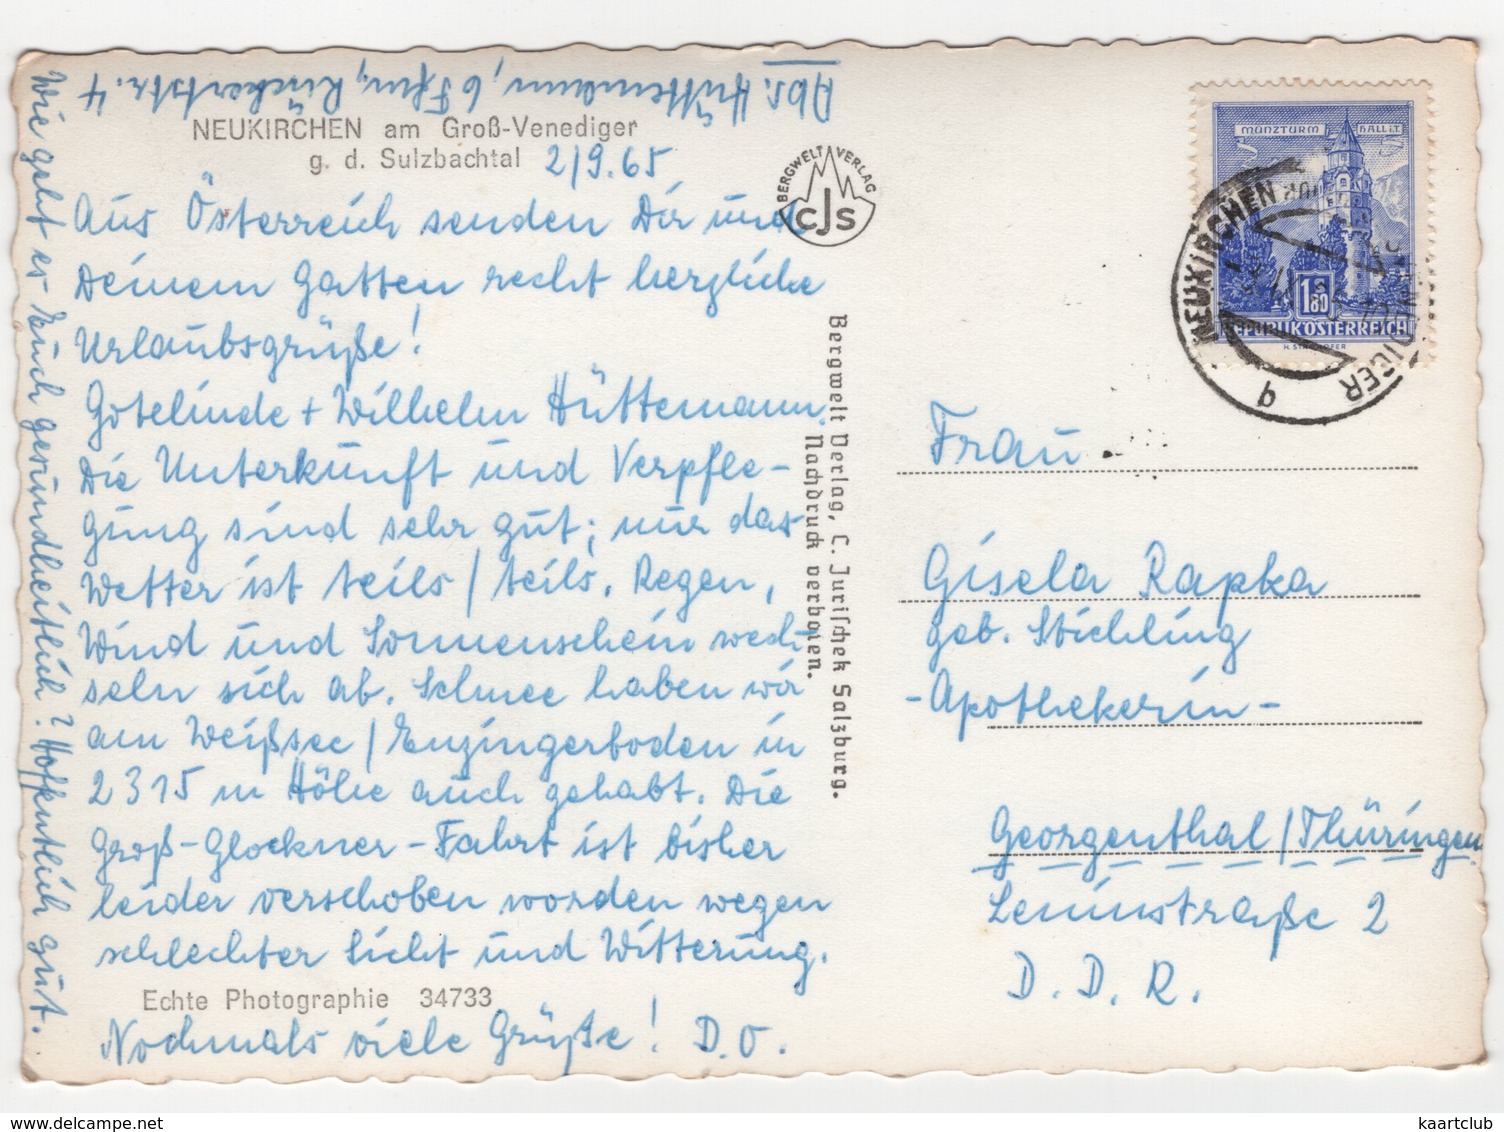 Abs. Hüttemann, 6 Ffm, Rückertstr. 4
NEUKIRCHEN am Groß-Venediger
g. d. Sulzbachtal 2/9.65
Aus Österreich senden Dir und
Deinem Gatten recht herzliche
Urlaubsgrüße!
Gotelinde + Wilhelm Hüttemann.
Die Unterkunft und Verpfle-
gung sind sehr gut; nur das
Wetter ist teils/teils. Regen,
Wind und Sonnenschein wech-
seln sich ab. Schnee haben wir
am Weißsee/Enzingerboden in
2315 m Höhe auch gehabt. Die
Groß-Glockner-Fahrt ist bisher
leider verschoben worden wegen
schlechter Sicht und Witterung.
Echte Photographie 34733
Nochmals viele Grüße! D.O.
Wie geht es Euch gesundheitlich? Hoffentlich gut.
BERGWELT VERLAG
CJS
Bergwelt Verlag, C. Jurischek Salzburg.
Nachdruck verboten.
MÜNZTURM HALL i.T.
S S
1.80
REPUBLIK ÖSTERREICH
NEUKIRCHEN
b
Frau
Gisela Rapka
geb. Stichling
-Apothekerin-
Georgenthal/Thüringen
Leninstraße 2
D. D. R.
kaartclub